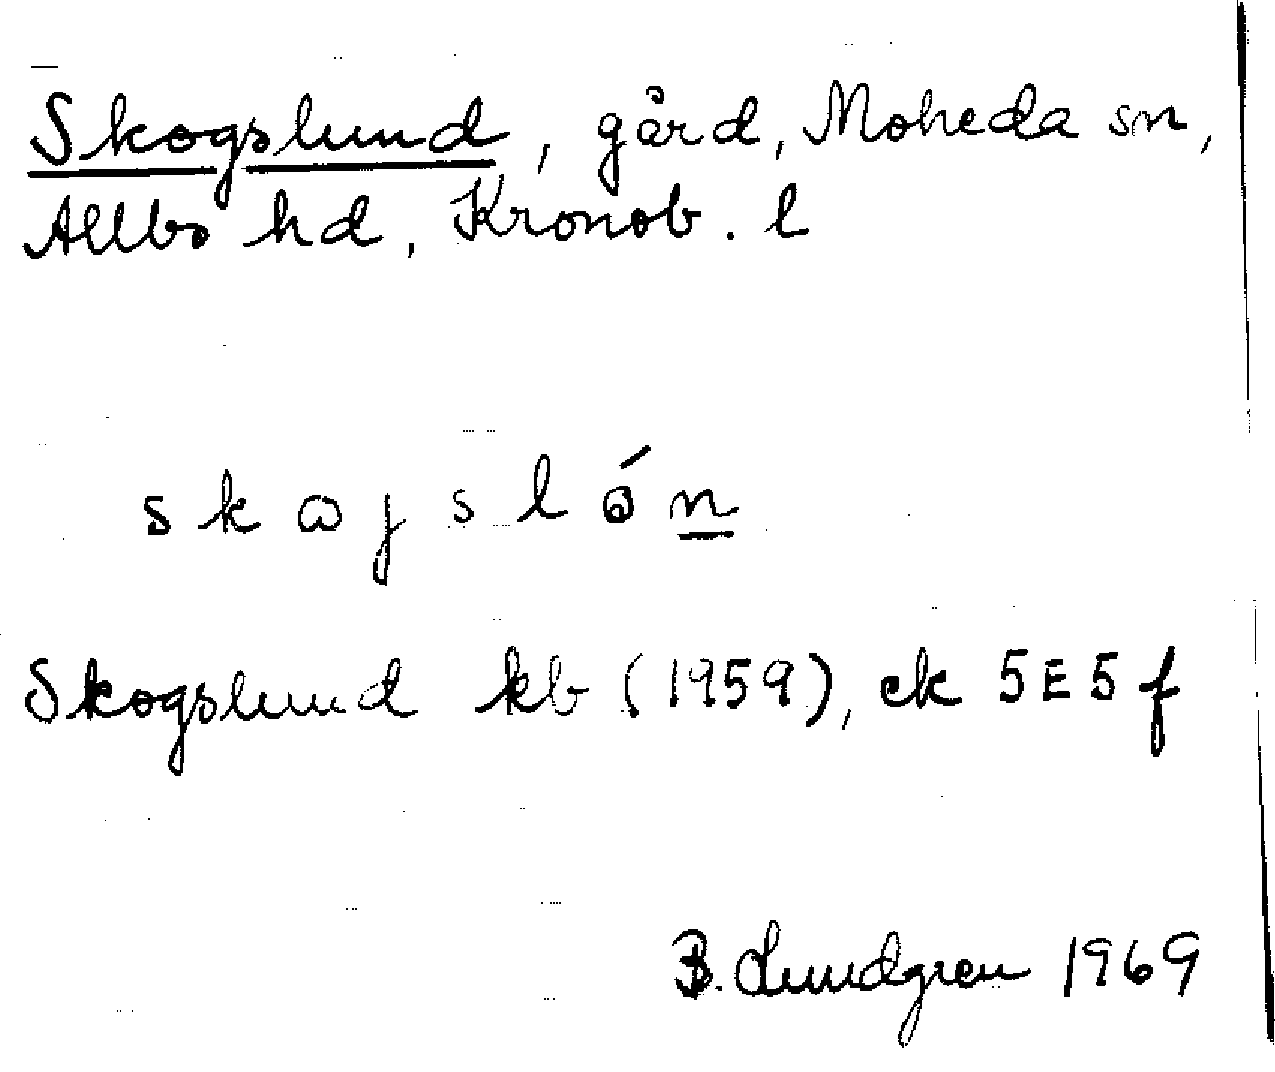 Skogslund, gård, Moheda sn,
Allbo hd, Kronob. l
skɷjslón
Skogslund kb (1959), ek 5E5f
B. Lundgren 1969